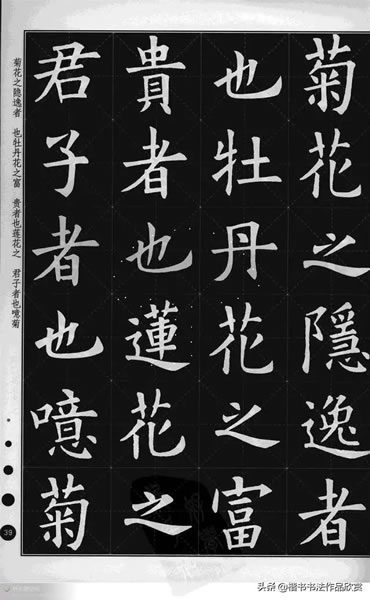 菊花之隱逸者
也牡丹花之富
貴者也蓮花之
君子者也噫菊
菊花之隐逸者　也牡丹花之富　贵者也莲花之　君子者也噫菊
39
头条@楷书书法作品欣赏